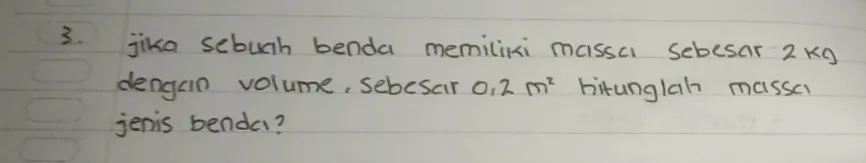 3. jika sebuah benda memiliki massa sebesar 2 kg
dengan volume, sebesar 0,2 m² hitunglah massa
jenis benda?